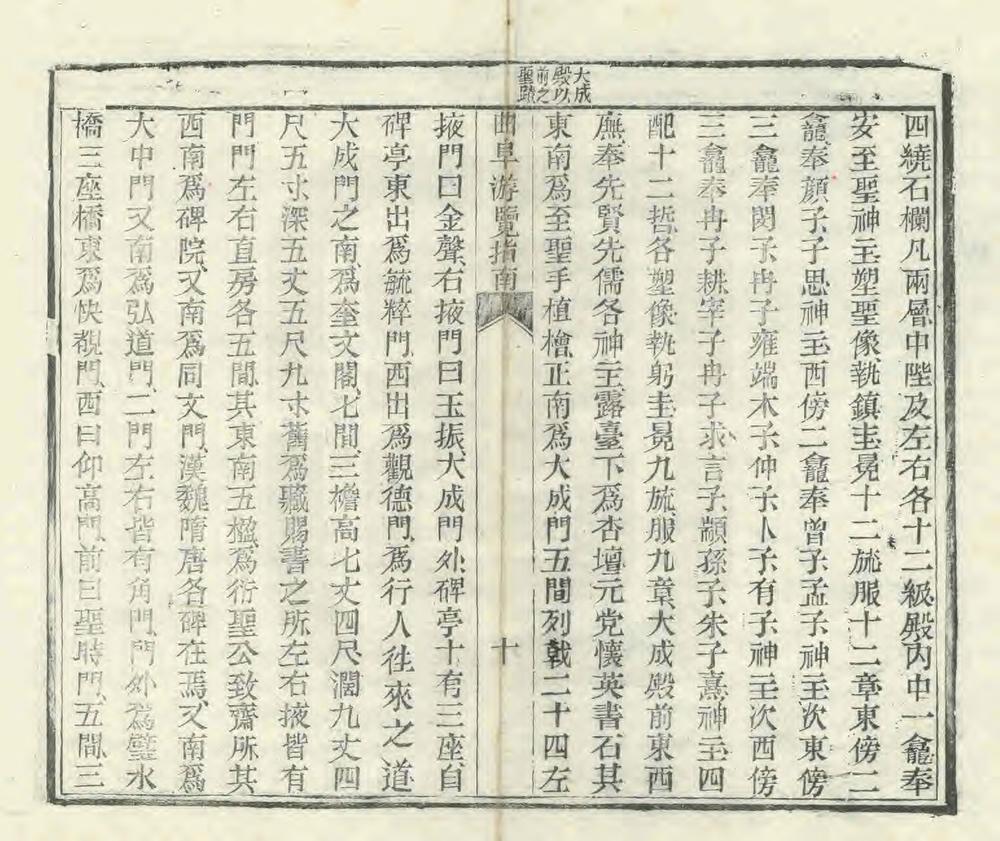 大成
殿以
前之
聖蹟
四繞石欄凡兩層中陛及左右各十二級殿內中一龕奉
安至聖神主塑聖像執鎮圭冕十二旒服十二章東傍二
龕奉顏子子思神主西傍二龕奉曾子孟子神主次東傍
三龕奉閔子冉子雍端木子仲子卜子有子神主次西傍
三龕奉冉子耕宰子冉子求言子顓孫子朱子熹神主四
配十二哲各塑像執躬圭冕九旒服九章大成殿前東西
廡奉先賢先儒各神主露臺下爲杏壇元党懷英書石其
東南爲至聖手植檜正南爲大成門五間列戟二十四左
曲阜游覽指南
十
掖門曰金聲右掖門曰玉振大成門外碑亭十有三座自
碑亭東出爲毓粹門西出爲觀德門爲行人徃來之道
大成門之南爲奎文閣七間三檐高七丈四尺濶九丈四
尺五寸深五丈五尺九寸舊爲藏賜書之所左右掖皆有
門門左右直房各五間其東南五楹爲衍聖公致齋所其
西南爲碑院又南爲同文門漢魏隋唐各碑在焉又南爲
大中門又南爲弘道門二門左右皆有角門門外爲璧水
橋三座橋東爲快覩門西曰仰高門前曰聖時門五間三